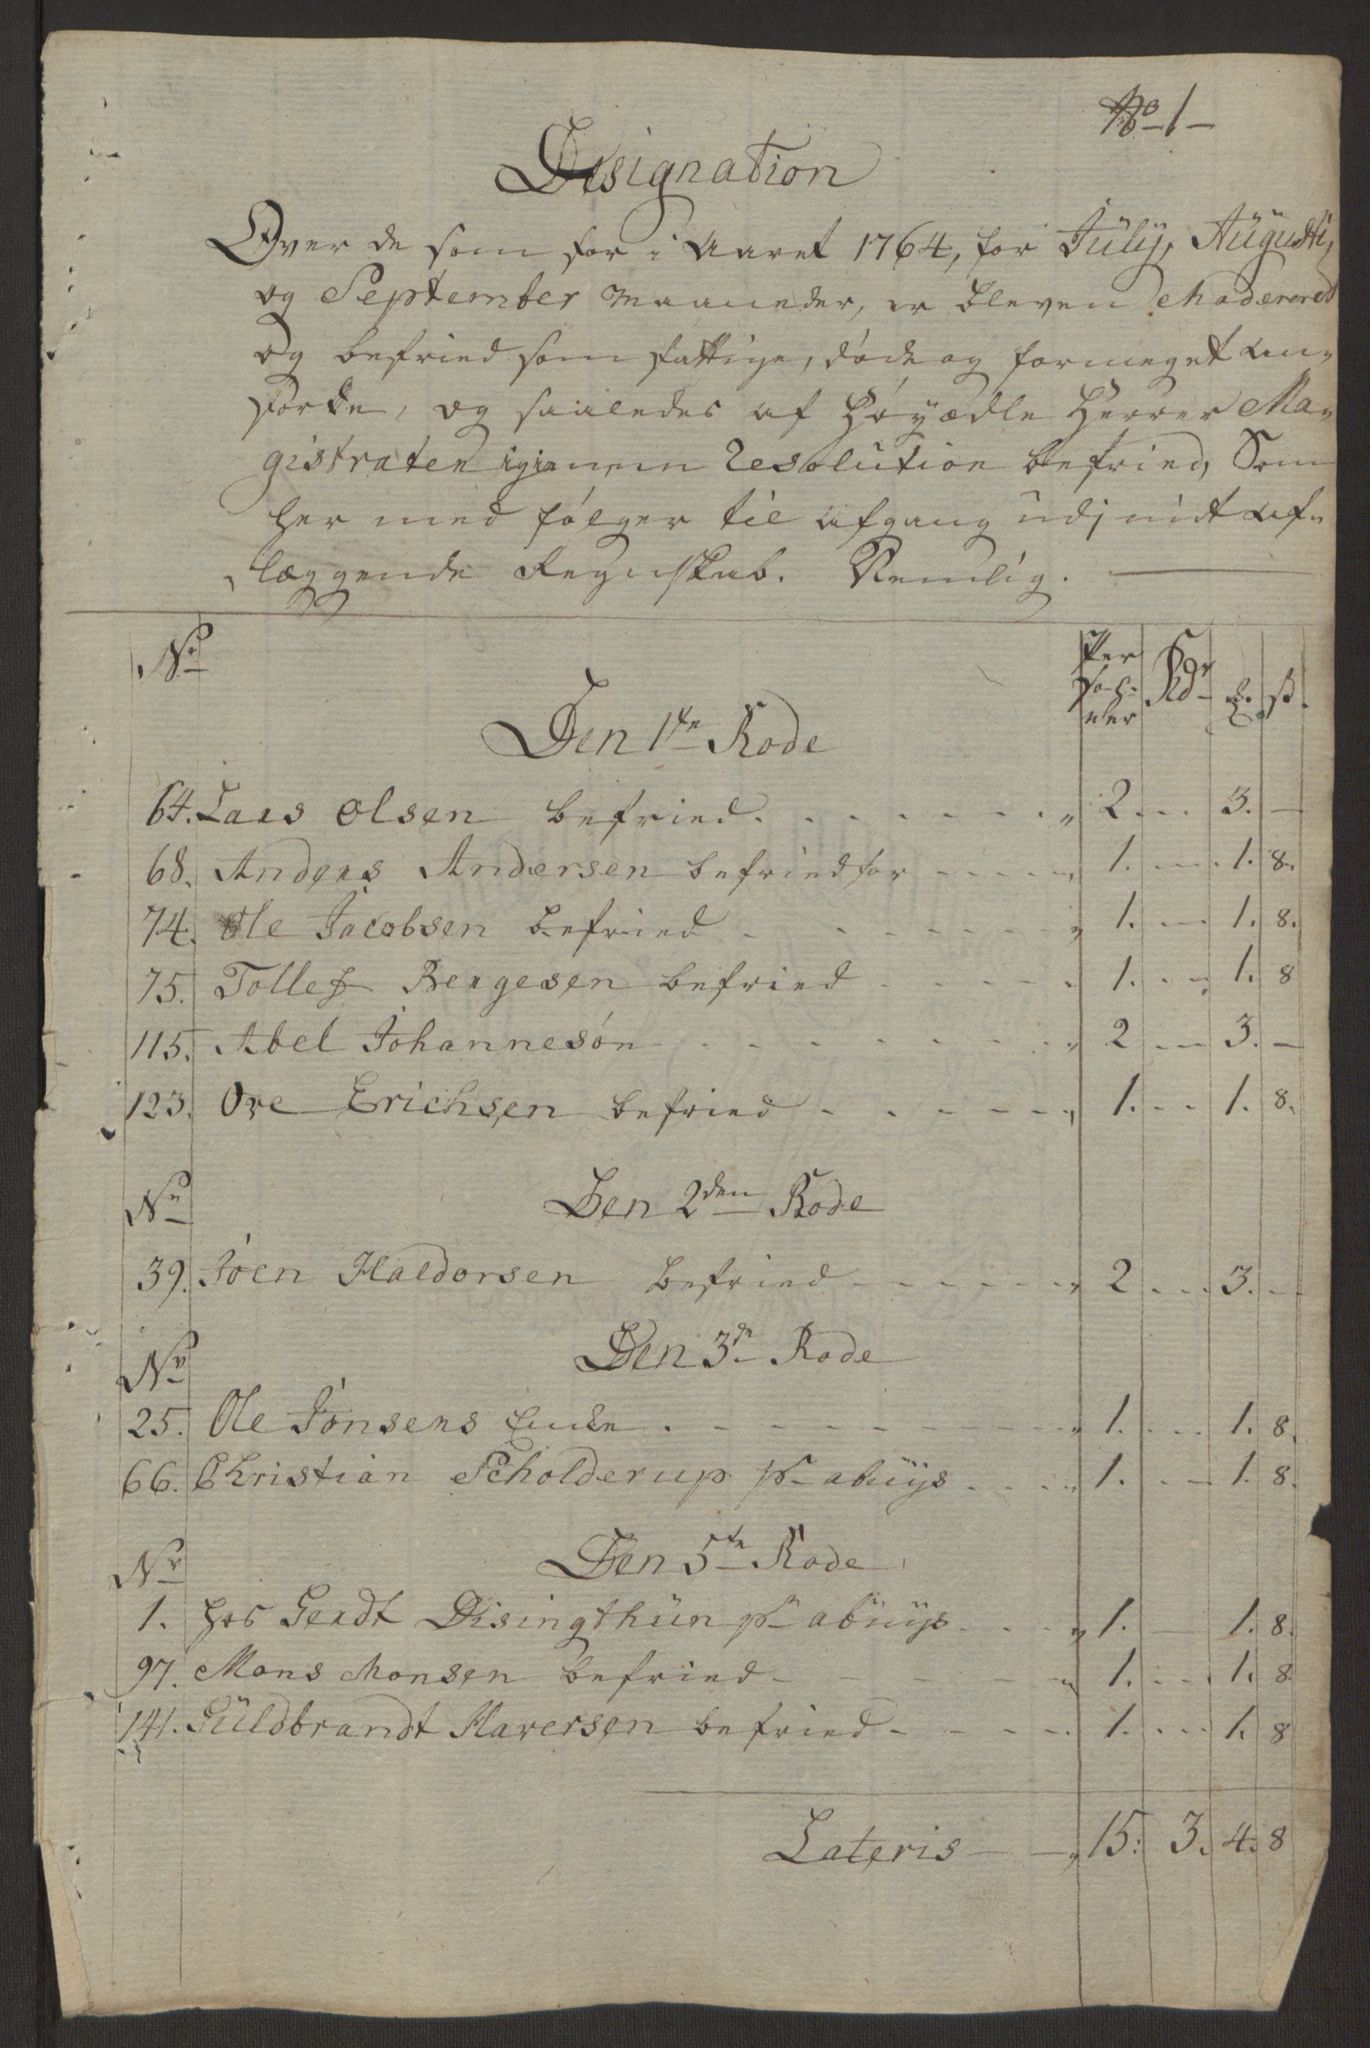 No 1
Designation
Over de som for i Aaret 1764, for July, Augusti,
og September Maaneder, er bleven Modereret
og befried som fattige, døde og formeget an-
førte, og saaledes af Høyædle Herrer Ma-
gistraten igienem Resolution befried, Som
her med følger til afgang udj mit af-
læggende Regnskab. Nemlig.
No Per sohner Rdr ß
Den 1te Rode
64. Lars Olsen befried 2 3. —
68. Anders Andersen befried for 1. 1. 8.
74. Ole Jacobsen befried 1. 1. 8.
75. Tollef Bergesen befried 1. 1. 8
115. Abel Johannesøn 2 3. —
123. Ove Erichsen befried 1. 1. 8.
Nr
Den 2den Rode
39. Joen Haldorsen befried 2 3. —
Nr
Den 3de Rode
25. Ole Jonsens Enke 1. 1. 8.
66. Christian Scholderup pr abuys 1. 1. 8.
Nr
Den 5te Rode
1. hos Gerdt Disingthun pr abuys 1. 1. 8.
97. Mons Monsen befried 1. 1. 8
141. Guldbrandt Haversen befried 1. 1. 8
Lateris 15. 3. 4. 8